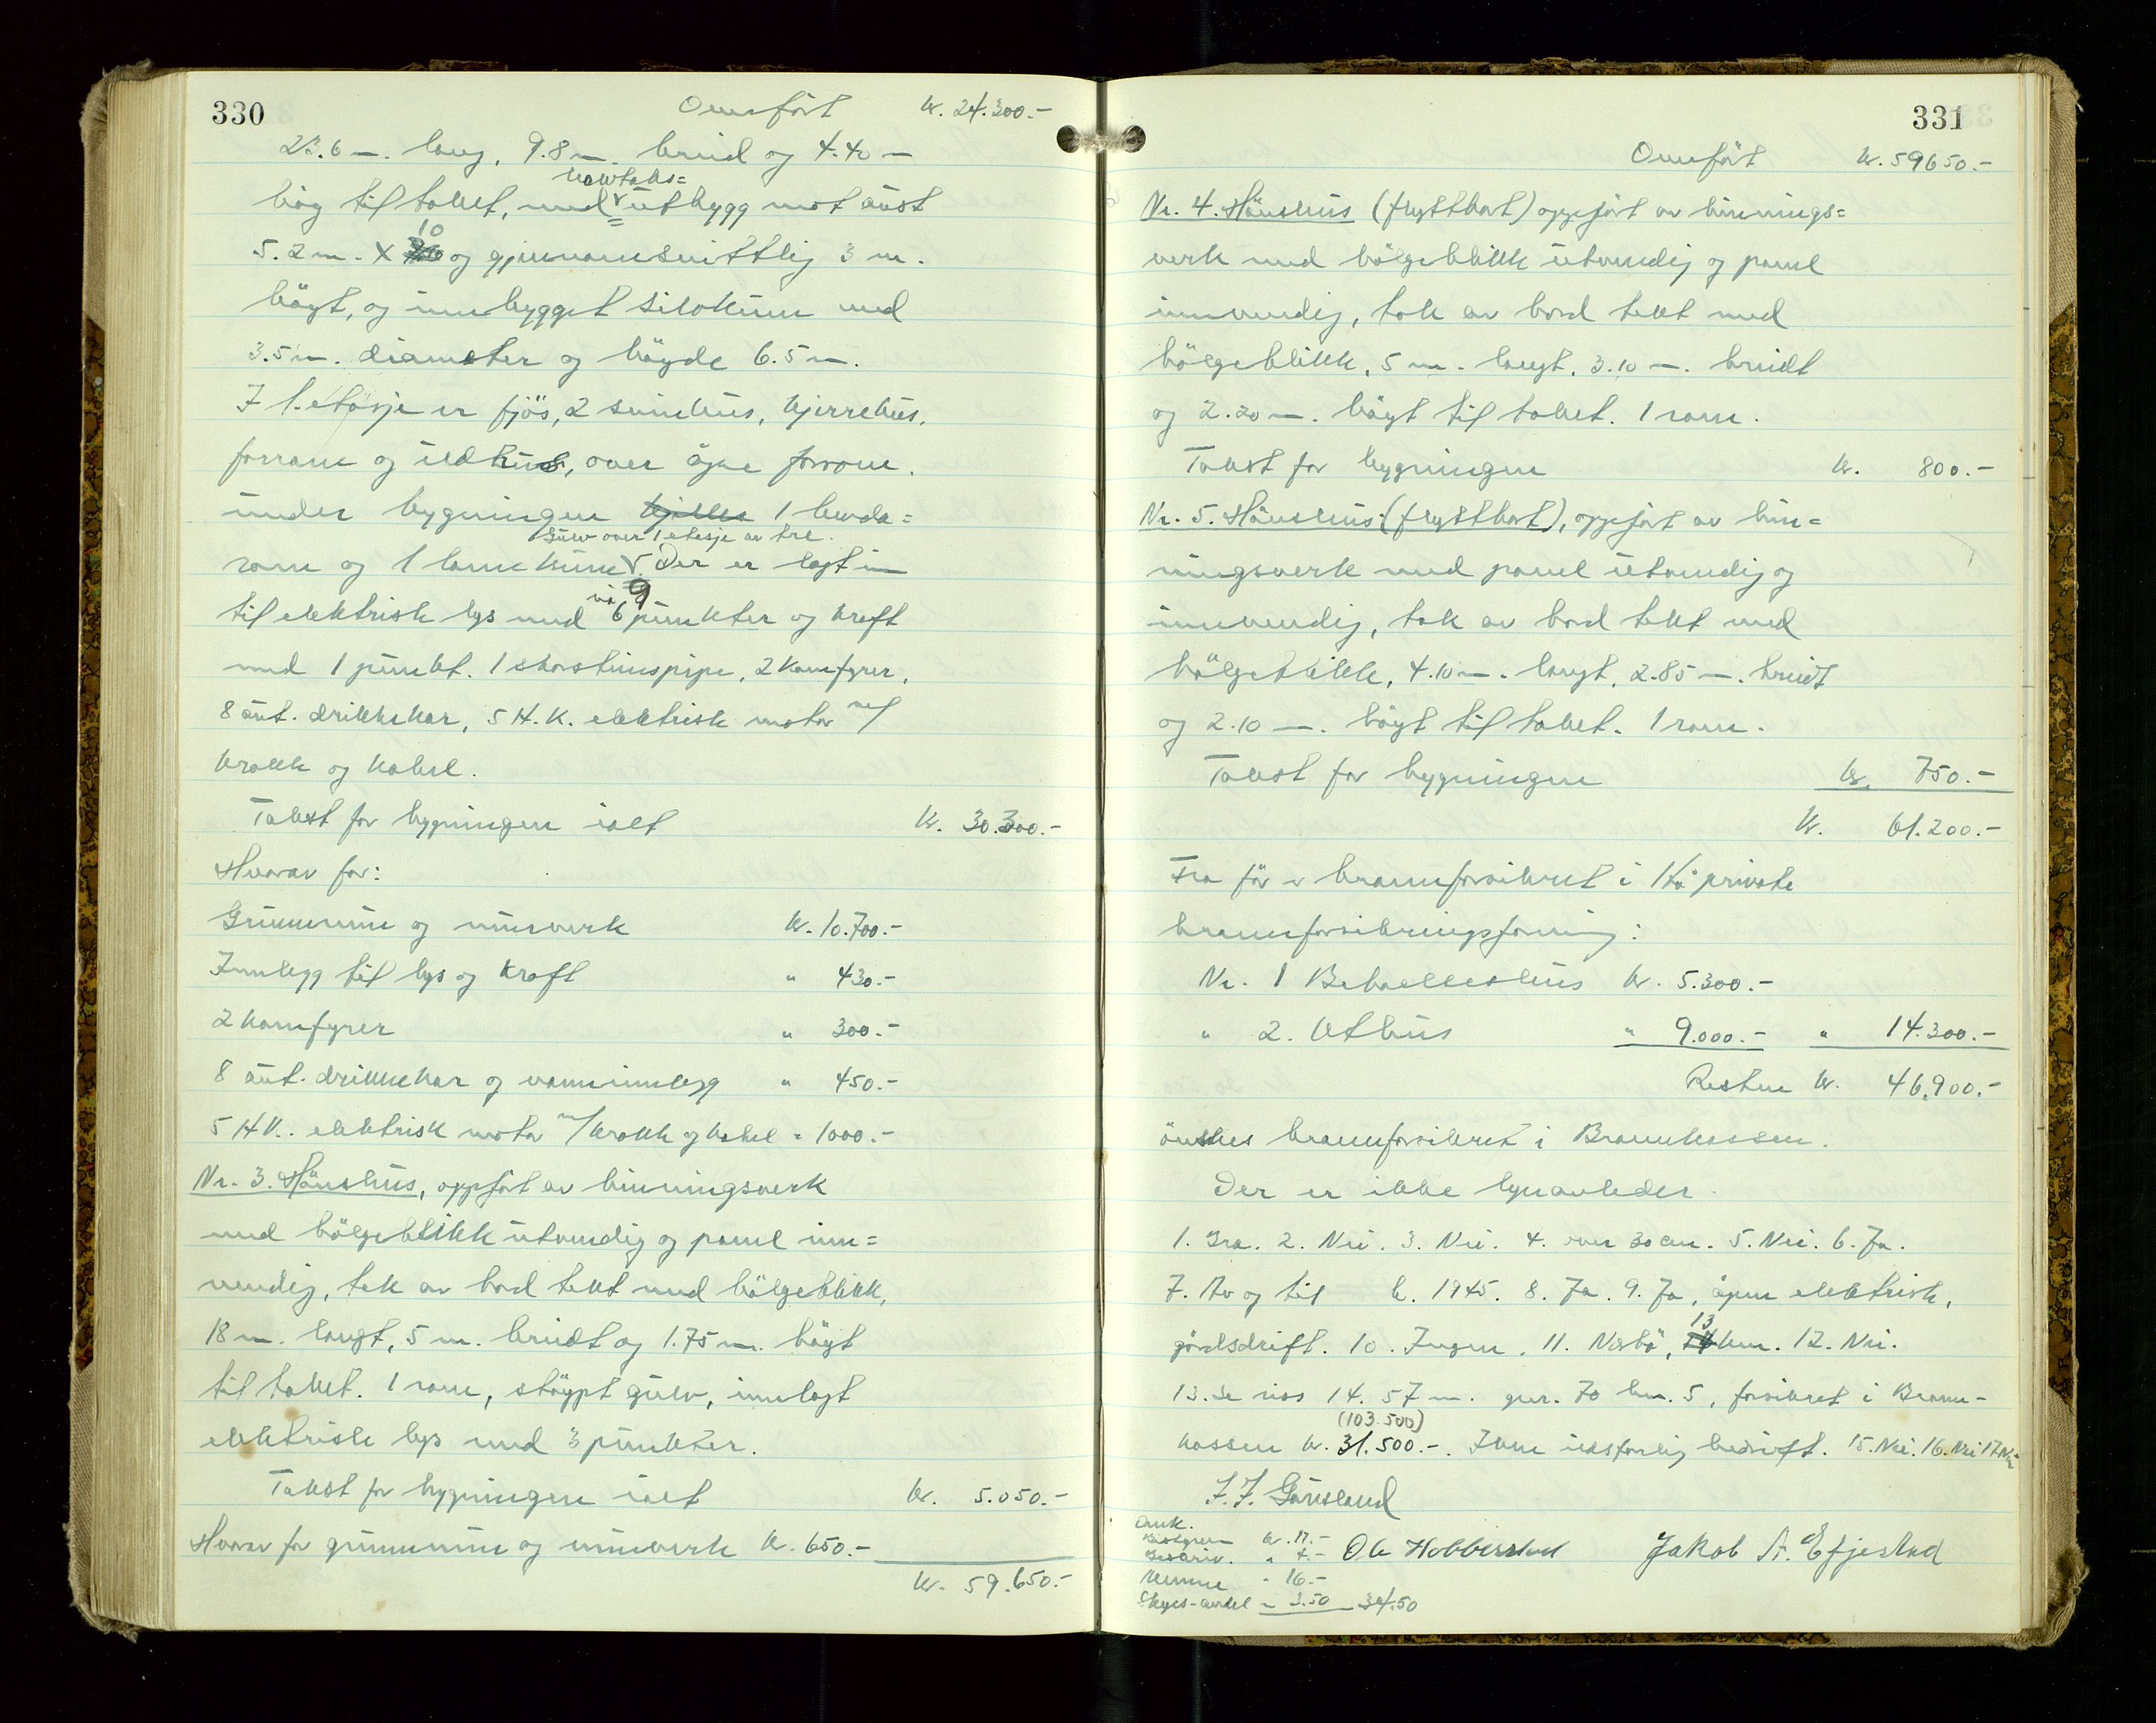 330
Omført kr. 24.300.-
23.6 m. lang, 9.8 m. breid og 4.40 m
høg til taket, med halvtaks=utbygg mot aust
5.2 m. x 10 og gjennomsnittlig 3 m.
høgt, og innbygget silokum med
3.5 m. diameter og høgde 6.5 m.
I 1. etasje er fjös, 2 svinhus, kjerrehus,
forrom og eldhus, over øgne forrom.
under bygningen kjeller 1 landa=
rom og 1 lannkum. Gulv over 1 etasje av tre. Der er lagt inn
til elektrisk lys med nå 9 6 punkter og kraft
med 1 punkt. 1 skorsteinspipe, 2 komfyrer,
8 aut. drikkekar, 5 H.K. elektrisk motor m/
krakk og kabel.
Takst for bygningen ialt kr. 30.300.-
Hvorav for:
Grunnmur og murverk kr. 10.700.-
Innlegg til lys og kraft " 430.-
2 komfyrer " 300.-
8 aut. drikkekar og vanninnlegg " 450.-
5 HK. elektrisk motor m/krakk og kabel " 1000.-
Nr. 3. Hönshus, oppfört av binningsverk
med bölgeblikk utvendig og panel inn=
vendig, tak av bord tekt med bölgeblikk,
18 m. langt, 5 m. breidt og 1.75 m. högt
til taket. 1 rom, stöypt gulv, innlagt
elektrisk lys med 3 punkter.
Takst for bygningen ialt kr. 5.050.-
Hvorav for grunnmur og murverk kr. 650.-
kr. 59.650.-
331
Omfört kr. 59650.-
Nr. 4. Hönshus (flyttbart) oppfört av binnings=
verk med bölgeblikk utvendig og panel
innvendig, tak av bord tekt med
bölgeblikk, 5 m. langt, 3.10 m. breidt
og 2.20 m. högt til taket. 1 rom.
Takst for bygningen kr. 800.-
Nr. 5. Hönshus (flyttbart), oppfört av bin=
ningsverk med panel utvendig og
innvendig, tak av bord tekt med
bölgeblikk, 4.10 m. langt, 2.85 m. breidt
og 2.10 m. högt til taket. 1 rom.
Takst for bygningen kr. 750.-
kr. 61.200.-
Fra för er brannforsikret i Hå private
brannforsikringsforening:
Nr. 1 Behaelleshus kr. 5.300.-
" 2. Uthus " 9.000.- " 14.300.-
Resten kr. 46.900.-
önskes brannforsikret i Brannkassen.
Der er ikke lynavleder.
1. Gra. 2. Nei. 3. Nei. 4. over 30 cm. 5. Nei. 6. Ja.
7. Av og til b. 1945. 8. Ja. 9. Ja, åpen elektrisk,
gårdsdrift. 10. Ingen. 11. Nærbö, 13 km. 12. Nei.
13. Se riss 14. 57 m. gnr. 70 bn. 5, forsikret i Brann-
kassen kr. 31.500.-. (103.500) Ikke ildsfarlig bedrift. 15. Nei. 16. Nei 17. Nei
J. J. Gausland
Ole Hobberstad Jakob A. Efjestad
Omk.
Beregnen kr. 11.-
Beskriv. " 4.-
Menne " 16.-
Skyss-andel " 3.50 34.50